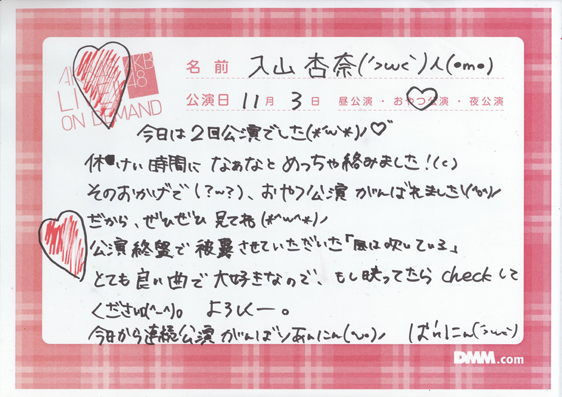 AKB48
LIVE!!
ON DEMAND
名前 入山杏奈('>ω<')人(omo)
公演日 11月3日 昼公演・おやつ公演・夜公演
今日は2回公演でした(*'w'*)ノ♡
休けい時間に なぁなと めっちゃ絡みました!(c)
そのおかげで(?~?)、おやつ公演 がんばれました\(^o^)/
だから、ぜひぜひ 見てね(*^w^*)ノ
公演終盤で 披露させていただいた「風は吹いている」
とても良い曲で 大好きなので、もし映ってたら checkして
ください(^-^)。 よろしくー。
今日から連続公演 がんばりあんにん(^ω^)ノ ばいにん('>ω<')
DMM.com